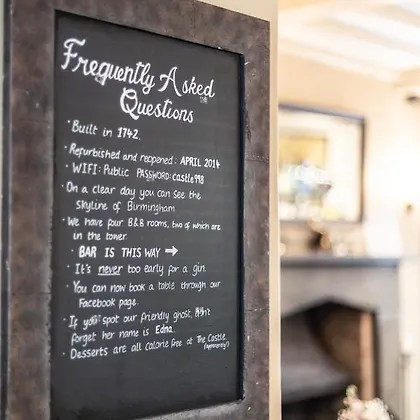 Frequently Asked
Questions
• Built in 1742.
• Refurbished and reopened: APRIL 2014
• WIFI: Public PASSWORD: castle998
• On a clear day you can see the
skyline of Birmingham
• We have four B&B rooms, two of which are
in the tower.
• BAR IS THIS WAY →
• It's never too early for a gin.
• You can now book a table through our
Facebook page.
• If you spot our friendly ghost, don't
forget her name is Edna.
• Desserts are all calorie free at The Castle
(apparently!)